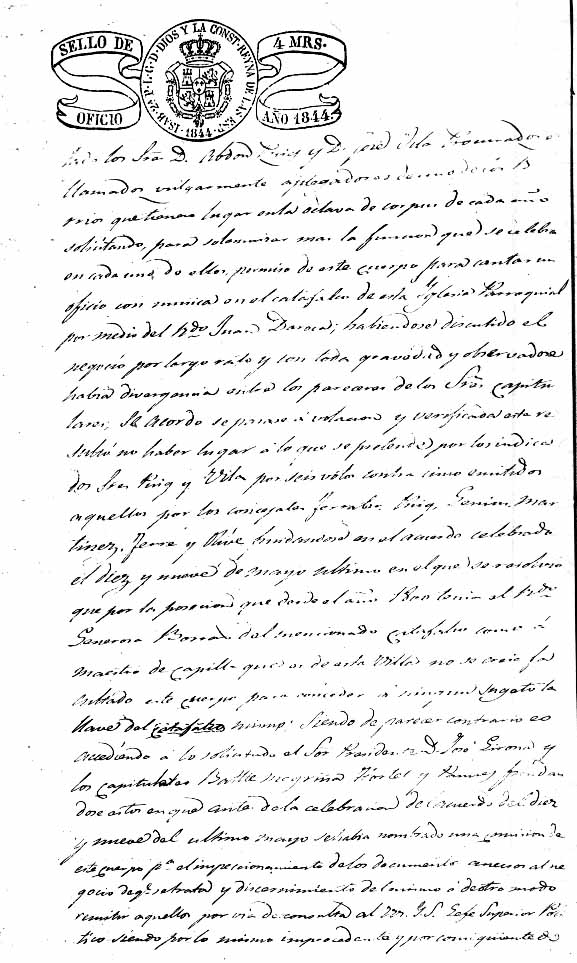 SELLO DE OFICIO
ISAB. 2ª P. L. G. D. DIOS Y LA CONST. REYNA DE LAS ESP. 1844
4 MRS. AÑO 1844
los Sres. D. Abdon Puig y D. José Vila Procuradores
llamados vulgarmente aplegadores de uno de los B
rrios que tienen lugar en la octava de corpus de cada año
solicitando, para solemnisar mas la funcion que se celebra
en cada uno de ellos, permiso de este cuerpo para cantar un
oficio con musica en el catafalco de esta Yglesia Parroquial
por medio del Rdo Juan Daroca; habiendose discutido el
negocio por largo rato y con toda gravedad y observadose
habia divergencia entre los pareceres de los Sres Capitu
lares; Se acordo se pasase á votacion y verificada esta re
sultó no haber lugar á lo que se pretende por los indica
dos Sres Puig y Vila por seis votos contra cinco emitidos
aquellos por los concejales Ferrater, Puig, Mar
tinez, Ferré y fundandose en el acuerdo celebrado
el diez y nueve de mayo ultimo en el que se resolvió
que por la posecion que desde el año tenia el Rdo
del mencionado catafalco como á
maestro de capilla que es de esta Villa no se creio fa
cultado este cuerpo para conceder á ningun sugeto la
llave del catafalco Siendo de parecer contrario
accediendo á lo solicitado el Sor Presidente D. José Girona y
los capitulares Batlle y fundan
dose estos en que antes de la celebracion del acuerdo del diez
y nueve del ultimo mayo se habia nombrado una comision de
este cuerpo pª el inspeccionamiento de los documentos anecsos al ne
gocio de qe se trata y discernimiento de lo mismo ó de otro modo
remitir aquellos por via de consulta al M. Y. S. Gefe Superior Poli
tico siendo por lo mismo improcedente y por consiguiente de